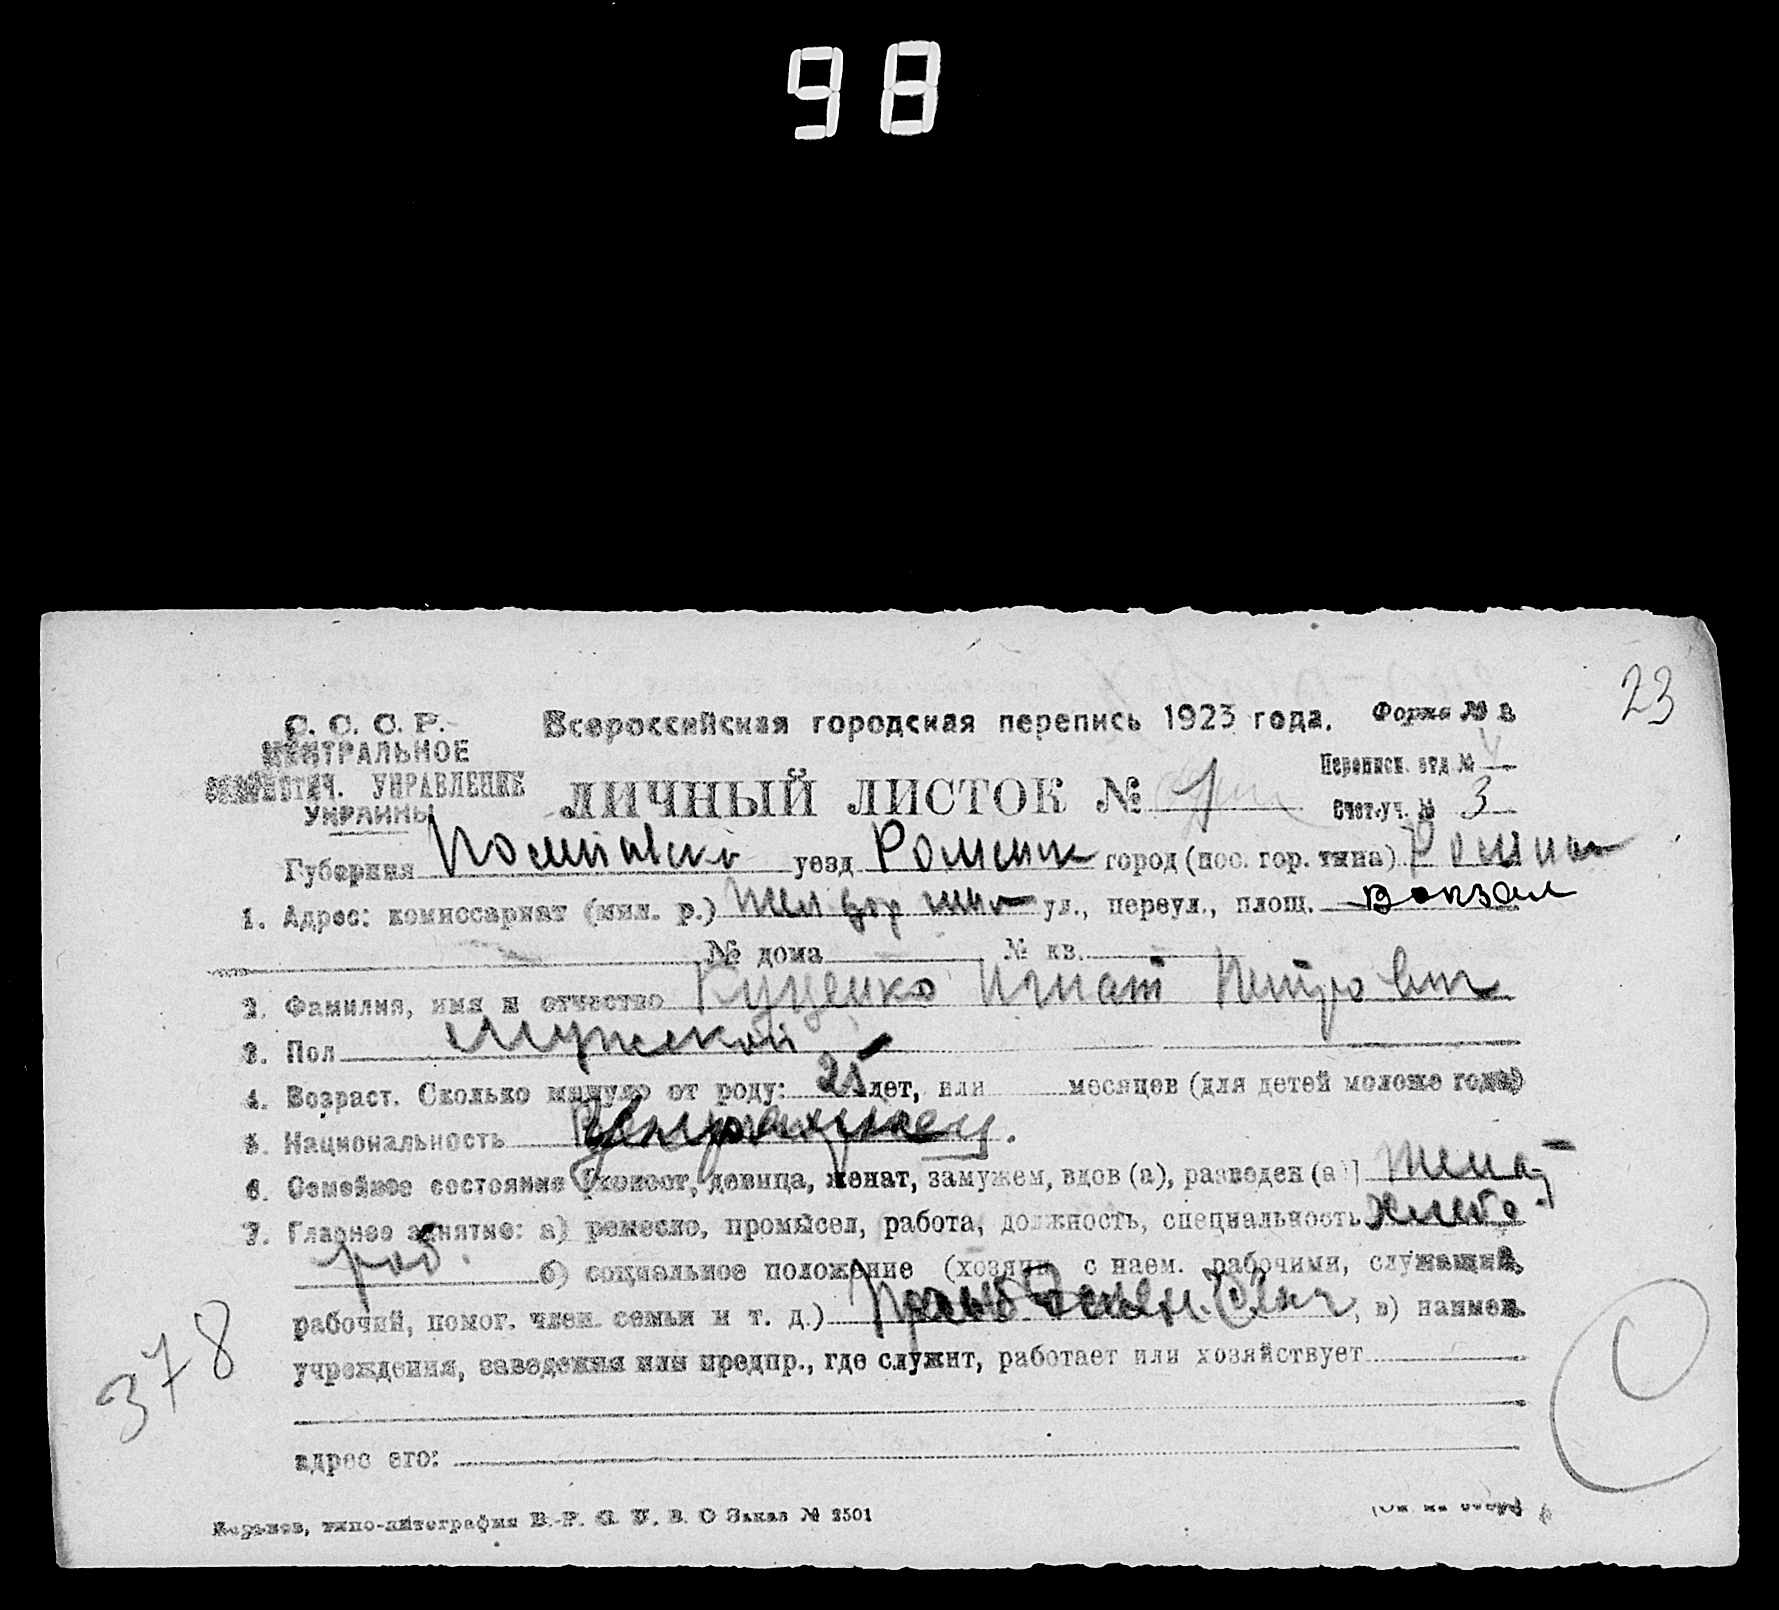 98
23
С. С. С. Р. Всероссийская городская перепись 1923 года. Форма № 3
ЦЕНТРАЛЬНОЕ
СТАТИСТИЧ. УПРАВЛЕНИЕ
УКРАИНЫ
Переписн. отд №
ЛИЧНЫЙ ЛИСТОК № 1 Счетн. уч. № 3
Губерния Полтавск уезд Роменск город (пос. гор. типа) Ромны
1. Адрес: комиссариат (мил. р.) ул., переул., площ. Вокзал
№ дома № кв.
2. Фамилия, имя и отчество Куценко Игнат Петрович
3. Пол Мужской
4. Возраст. Сколько минуло от роду: 25 лет, или месяцев (для детей моложе года)
5. Национальность Украинец.
6. Семейное состояние (холост, девица, женат, замужем, вдов (а), разведен (а)] Женат
7. Главное занятие: а) ремесло, промысел, работа, должность, специальность хлебо-
роб. б) социальное положение (хозяин с наем. рабочими, служащий,
рабочий, помог. член. семьи и т. д.) , в) наимен.
учреждения, заведения или предпр., где служит, работает или хозяйствует
адрес его:
378
С
Харьков, типо-литография В.-Р. С. У. В. О Заказ № 2501